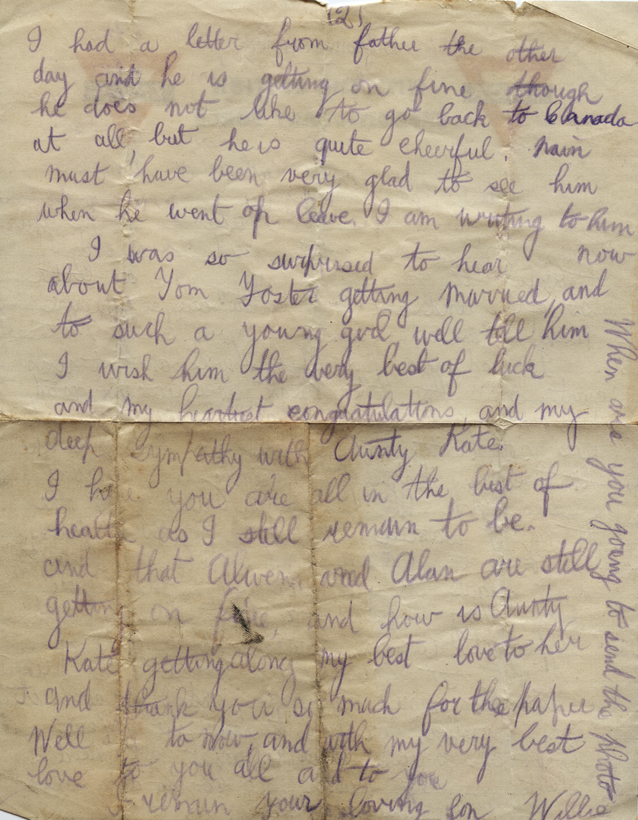 (2)
I had a letter from father the other
day and he is getting on fine though
he does not like to go back to Canada
at all, but he is quite cheerful. Nain
must have been very glad to see him
when he went on leave. I am writing to him
now
I was so surprised to hear
about Tom Foster getting married, and
to such a young girl well tell him
I wish him the very best of luck
and my heartiest congratulations, and my
deep sympathy with Aunty Kate.
I hope you are all in the best of
health as I still remain to be.
and that Alwen, and Alan are still
getting on fine, and how is Aunty
Kate getting along my best love to her
and thank you so much for the paper
Well to now, and with my very best
love to you all and to you
I remain your loving son Willie
When are you going to send the photo